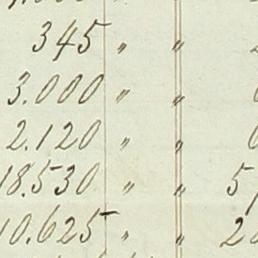 345 " "
3.000 " "
2.120 " "
18.530 " " 5
10.625 " " 2